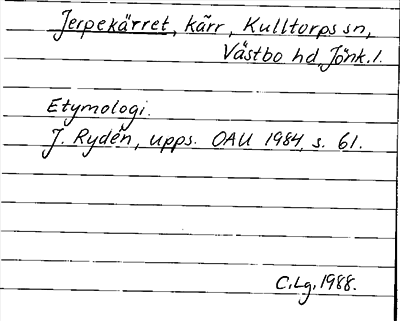 Jerpekärret, kärr, Kulltorps sn,
Västbo hd, Jönk. l.
Etymologi.
J. Rydén, upps. OAU 1984, s. 61.
C. Lg. 1988.